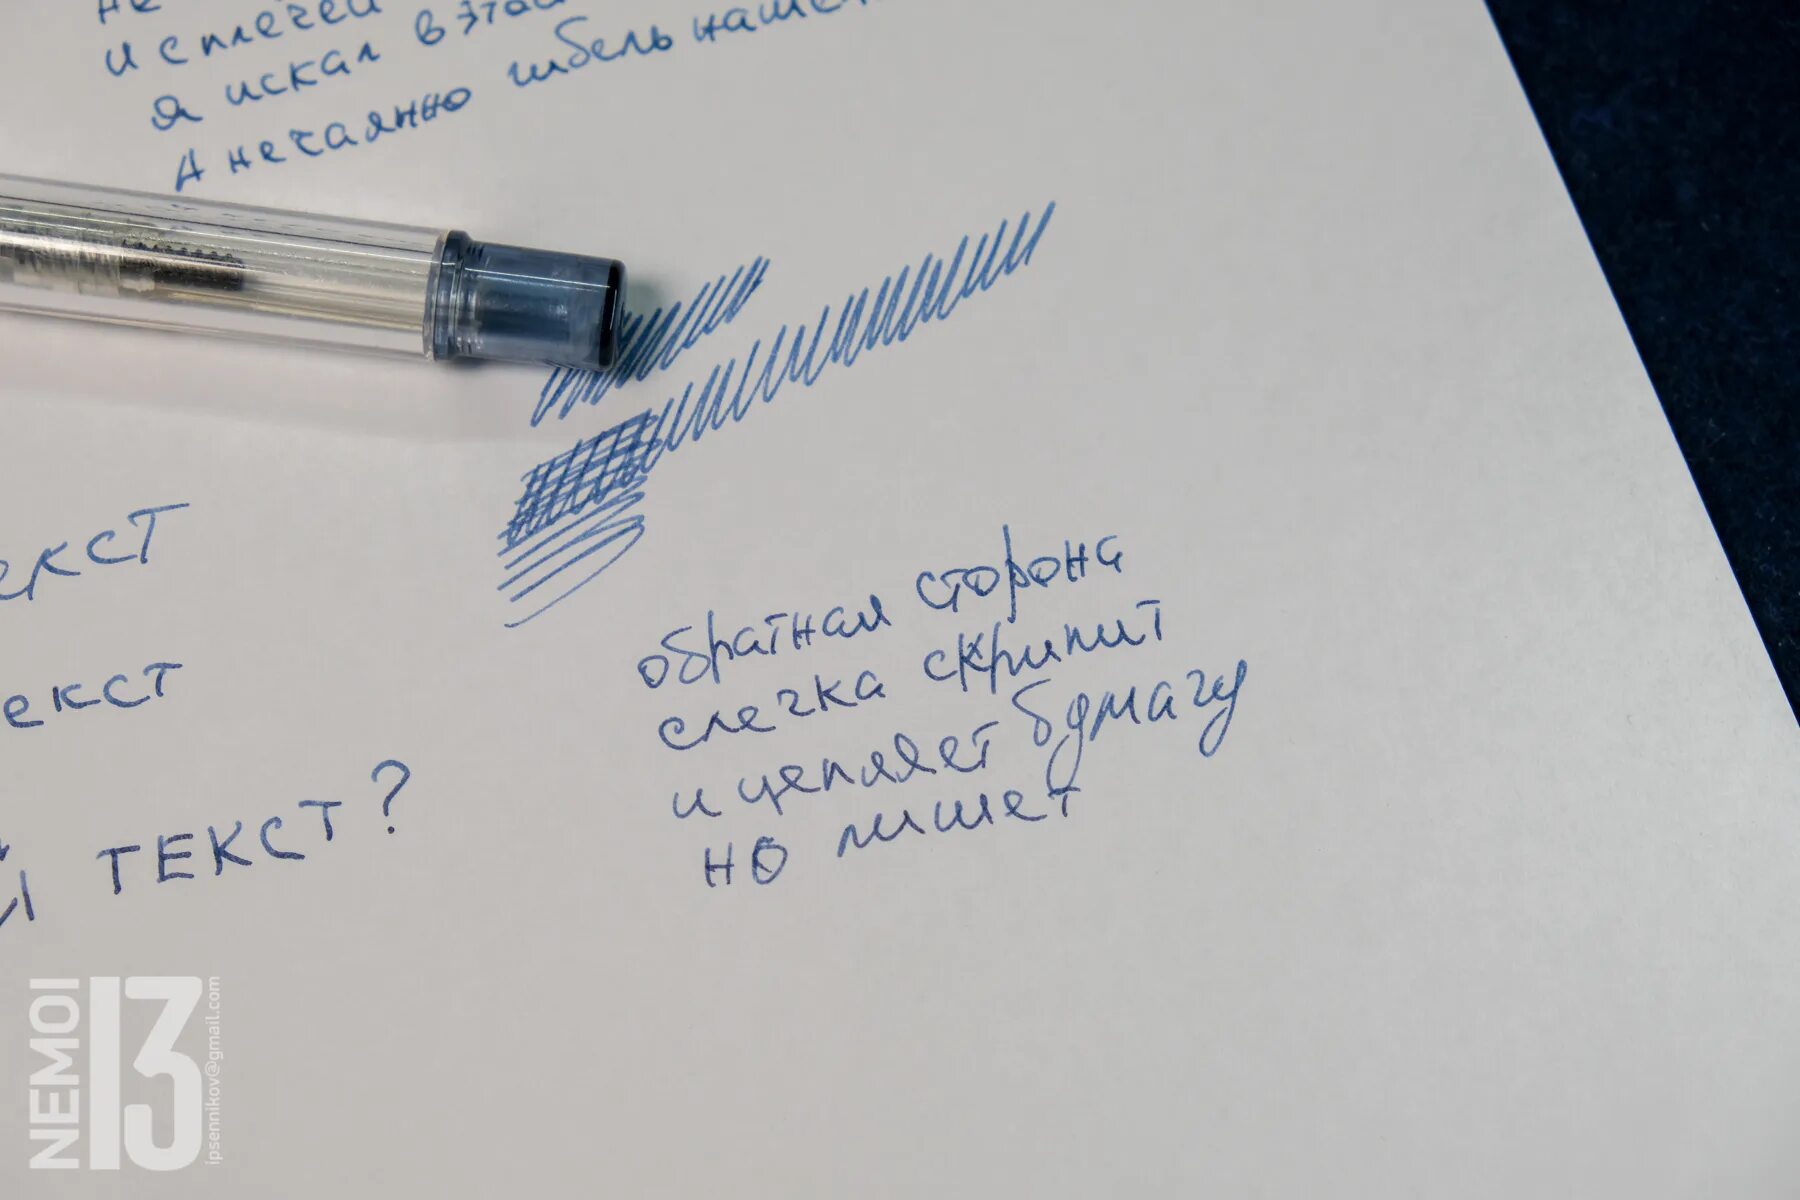 не
и с плечей
я искал в этой
А нечаянно гибель наше
екст
екст
й ТЕКСТ?
обратная сторона
слегка скрипит
и цепляет бумагу
но пишет
NEMOI
13
ipsennikov@gmail.com